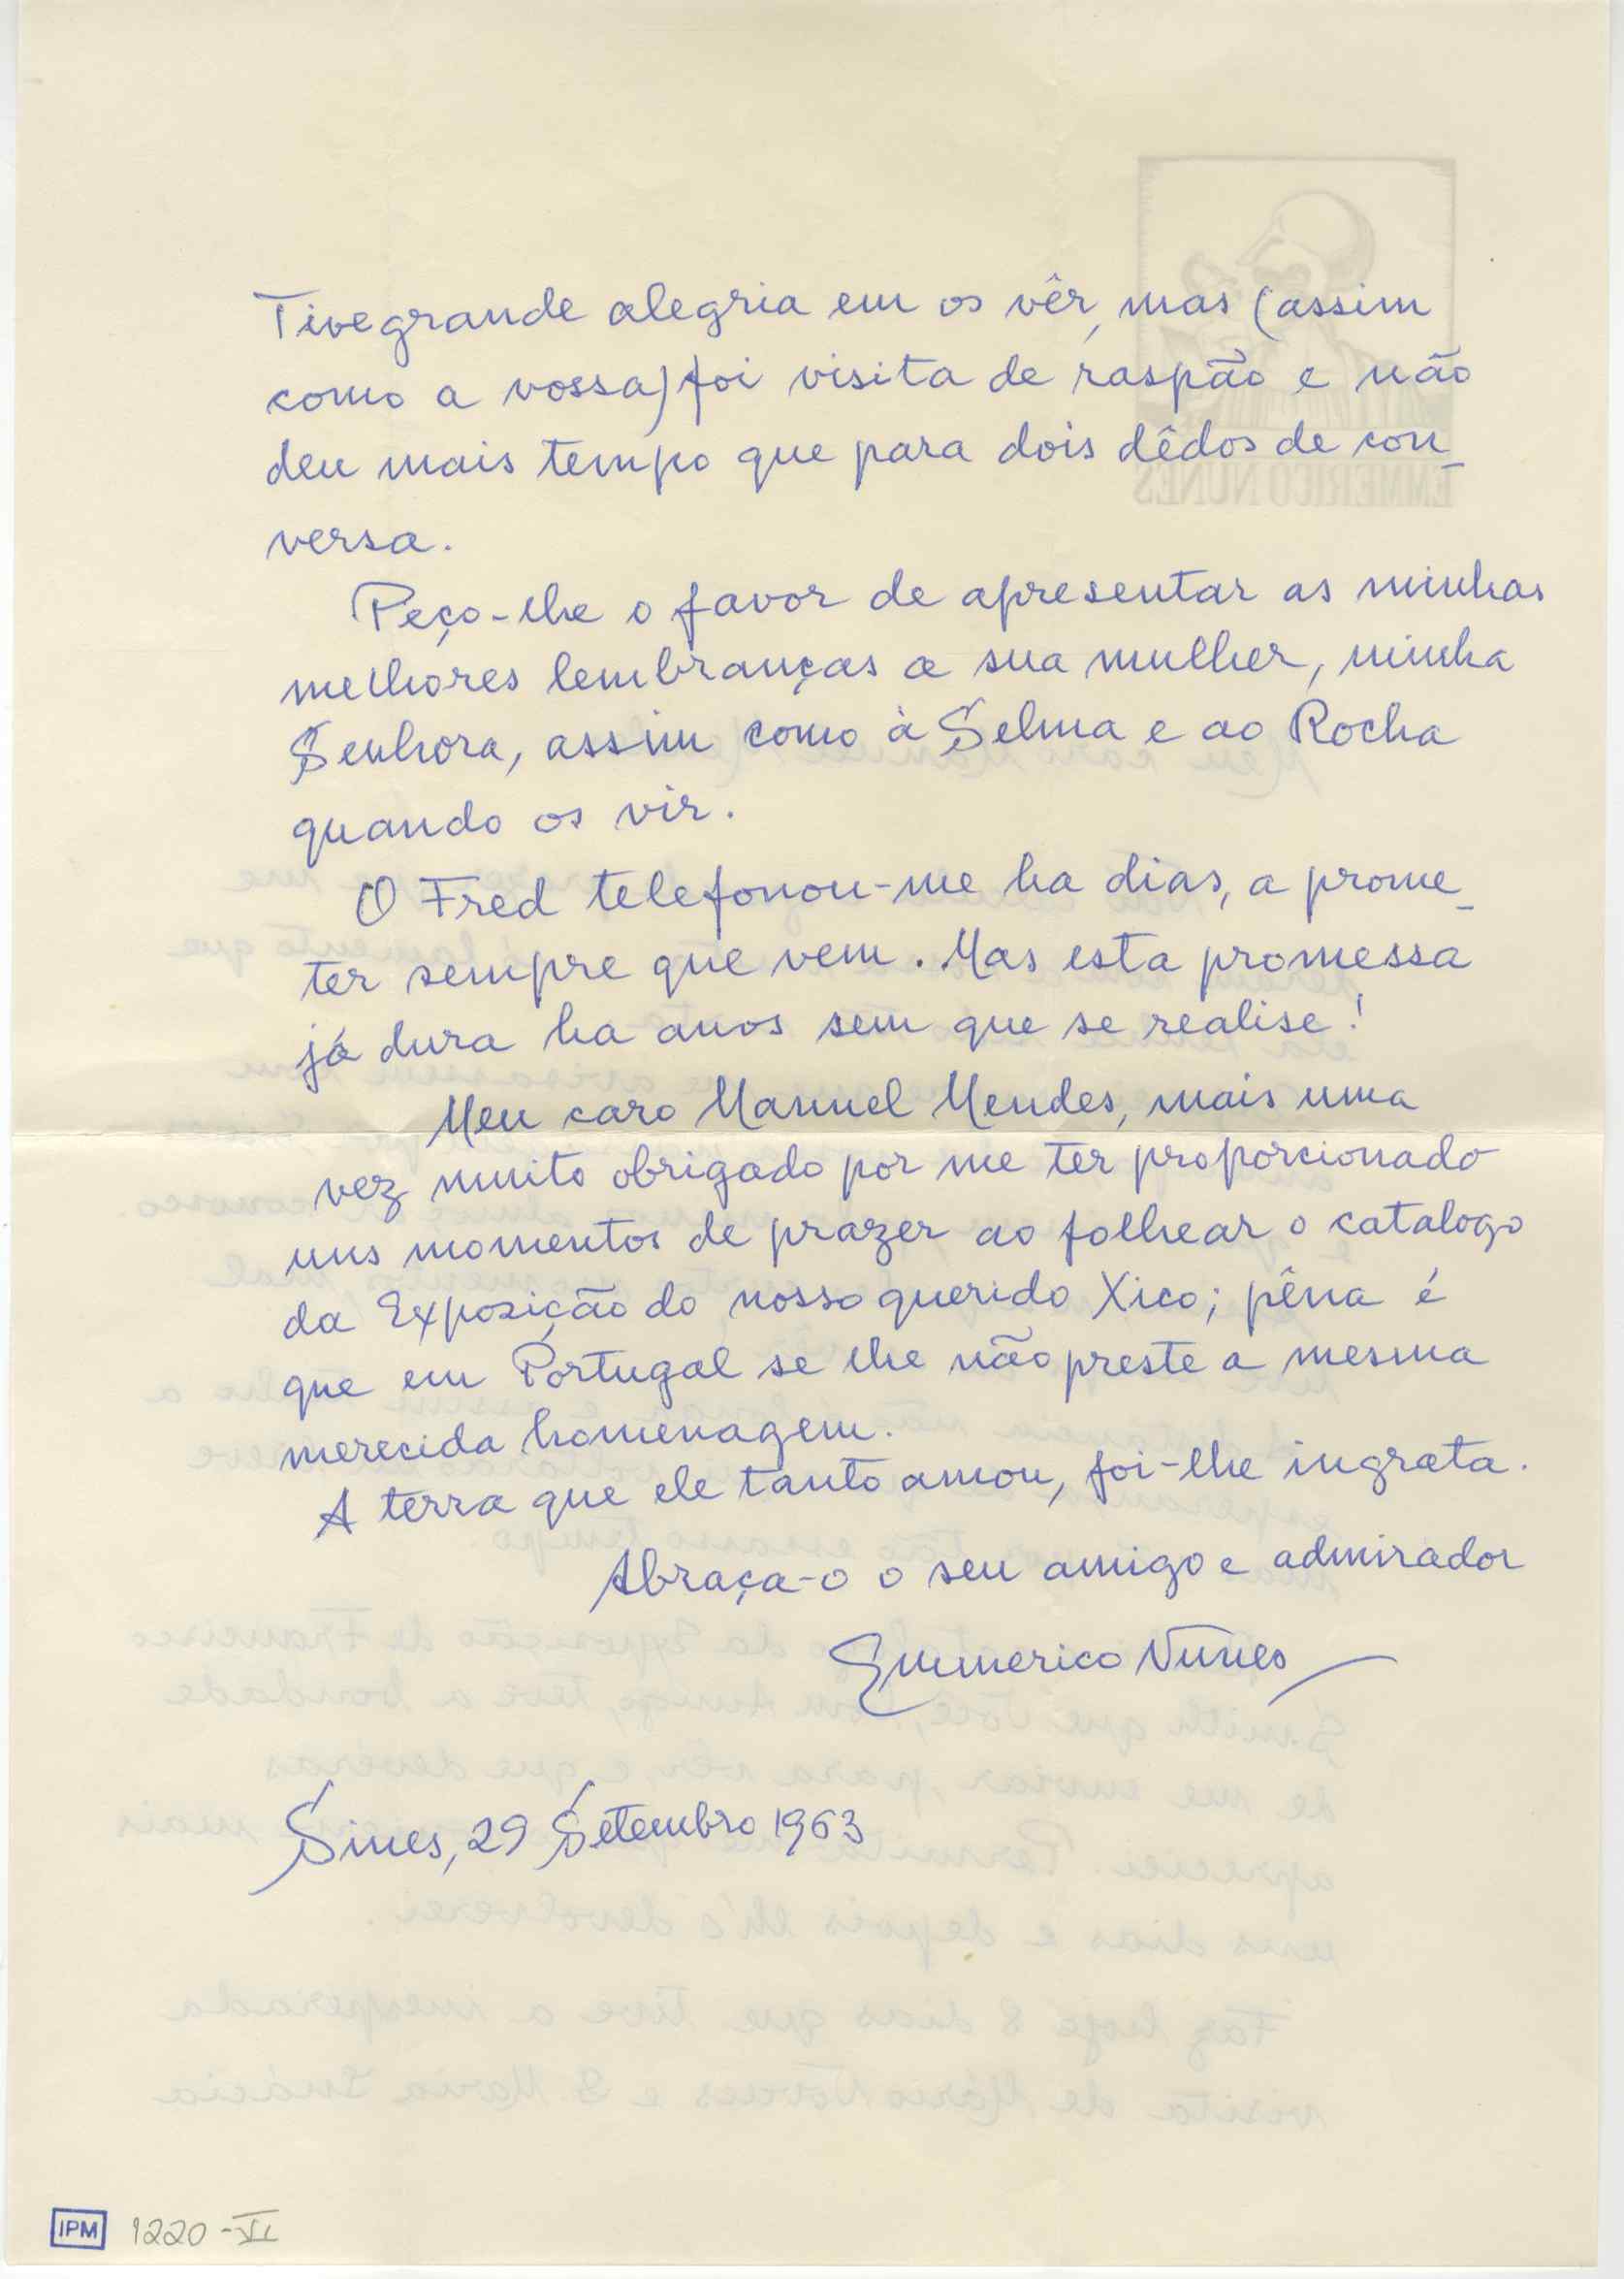 Tive grande alegria em os vêr, mas (assim
como a vossa) foi visita de raspão e não
deu mais tempo que para dois dêdos de con_
versa.
Peço-lhe o favor de apresentar as minhas
melhores lembranças a sua mulher, minha
Senhora, assim como à Selma e ao Rocha
quando os vir.
O Fred telefonou-me ha dias, a prome_
ter sempre que vem. Mas esta promessa
já dura ha anos sem que se realise!
Meu caro Manuel Mendes, mais uma
vez muito obrigado por me ter proporcionado
uns momentos de prazer ao folhear o catalogo
da Exposição do nosso querido Xico; pêna é
que em Portugal se lhe não preste a mesma
merecida homenagem.
A terra que ele tanto amou, foi-lhe ingrata.
Abraça-o o seu amigo e admirador
Emmerico Nunes
Sines, 29 Setembro 1963
IPM 1220-VI